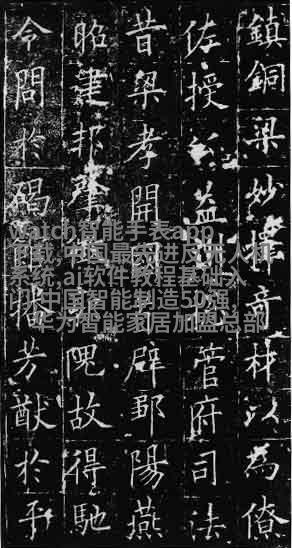 鎮銅梁妙擇奇材以為僚
佐授公益州管府司法
昔梁孝開國首辟鄒陽燕
昭建邦肇隗故得馳
令問於碣播芳猷於平
watch智能手表app
下载,中国最先进反无人机
系统,ai软件教程基础入
门,中国智能制造50强,
华为智能家居加盟总部